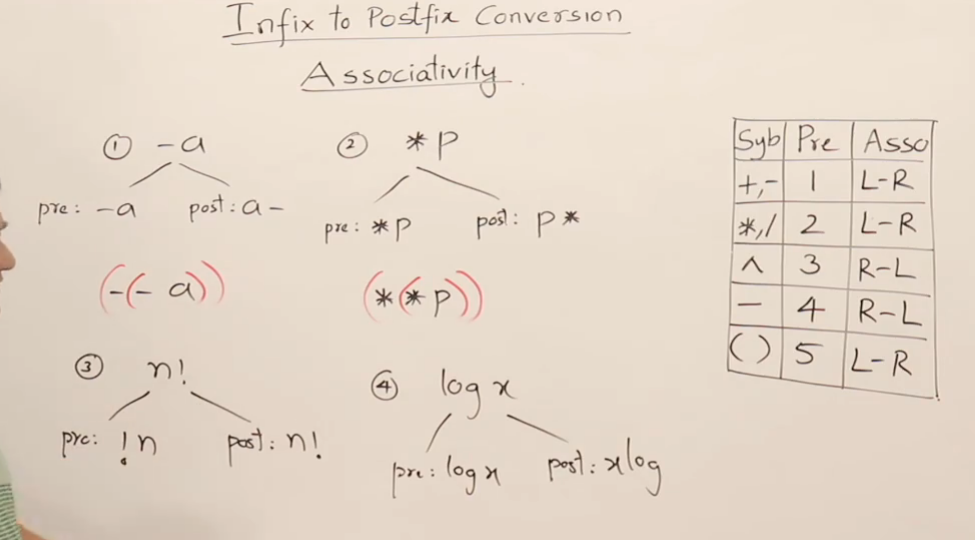 Infix to Postfix Conversion
Associativity.
① -a
pre: -a post: a-
(-(-a))
② *p
pre: *p post: p*
(*(*p))
③ n!
pre: !n post: n!
④ log x
pre: log x post: x log
Syb Pre Asso
+,- 1 L-R
*,/ 2 L-R
^ 3 R-L
- 4 R-L
( ) 5 L-R